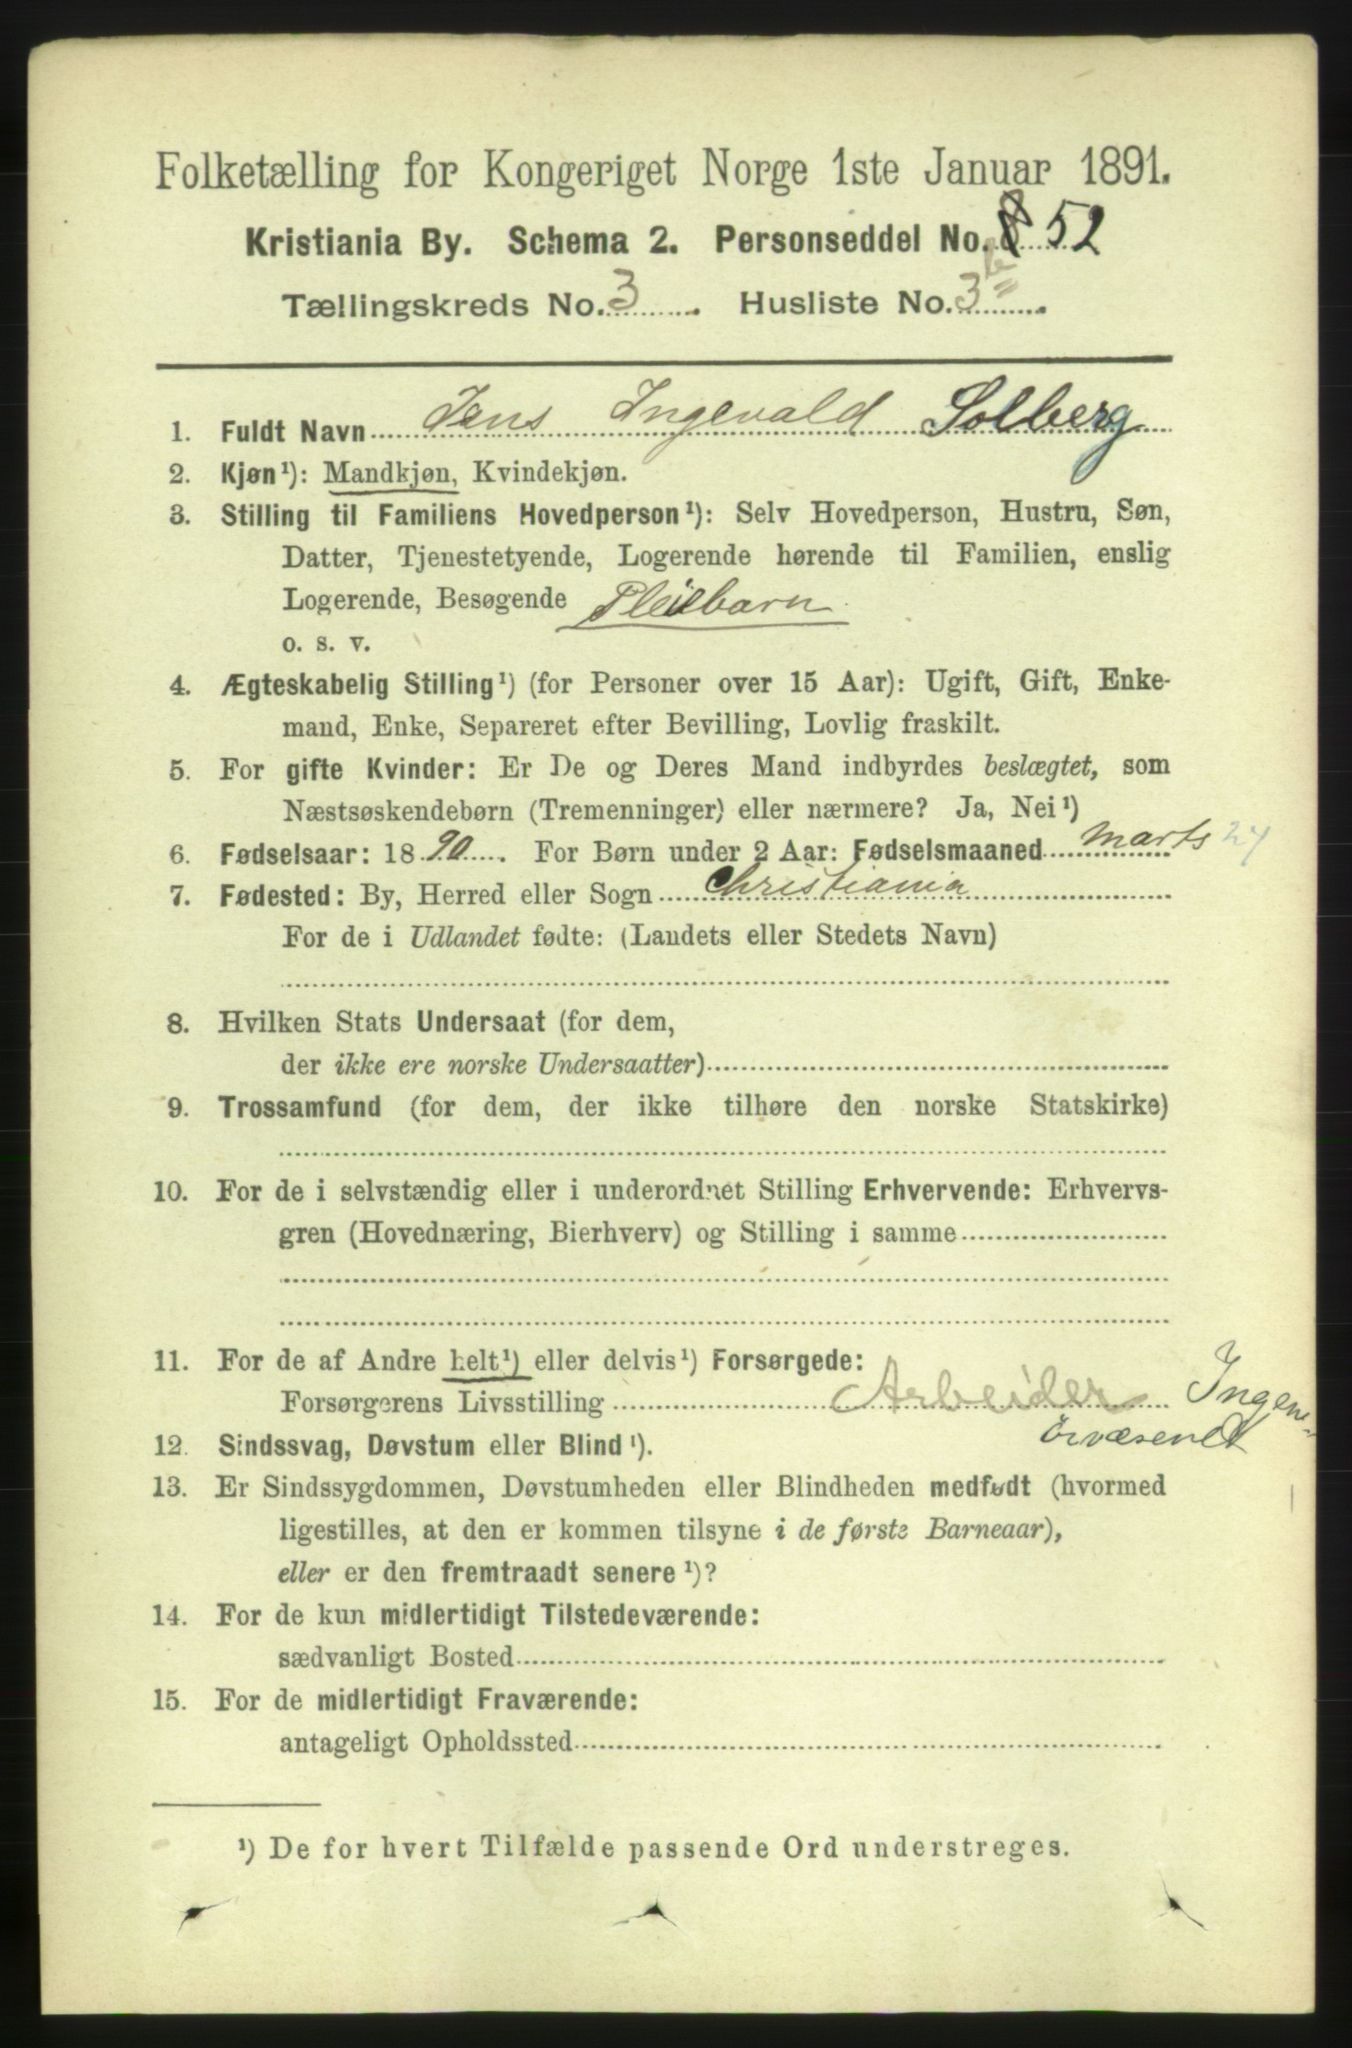 Folketælling for Kongeriget Norge 1ste Januar 1891.
Kristiania By. Schema 2. Personseddel No. 52
Tællingskreds No. 3. Husliste No. 3b
1. Fuldt Navn Jens Ingevald Solberg
2. Kjøn¹): Mandkjøn, Kvindekjøn.
3. Stilling til Familiens Hovedperson¹): Selv Hovedperson, Hustru, Søn,
Datter, Tjenestetyende, Logerende hørende til Familien, enslig
Logerende, Besøgende Pleiebarn
o. s. v.
4. Ægteskabelig Stilling¹) (for Personer over 15 Aar): Ugift, Gift, Enke-
mand, Enke, Separeret efter Bevilling, Lovlig fraskilt.
5. For gifte Kvinder: Er De og Deres Mand indbyrdes beslægtet, som
Næstsøskendebørn (Tremenninger) eller nærmere? Ja, Nei¹)
6. Fødselsaar: 1890. For Børn under 2 Aar: Fødselsmaaned Marts 24
7. Fødested: By, Herred eller Sogn Christiania
For de i Udlandet fødte: (Landets eller Stedets Navn)
8. Hvilken Stats Undersaat (for dem,
der ikke ere norske Undersaatter)
9. Trossamfund (for dem, der ikke tilhøre den norske Statskirke)
10. For de i selvstændig eller i underordnet Stilling Erhvervende: Erhvervs-
gren (Hovednæring, Bierhverv) og Stilling i samme
11. For de af Andre helt¹) eller delvis¹) Forsørgede:
Forsørgerens Livsstilling Arbeider Ingeni-
örvæsenet
12. Sindssvag, Døvstum eller Blind¹).
13. Er Sindssygdommen, Døvstumheden eller Blindheden medfødt (hvormed
ligestilles, at den er kommen tilsyne i de første Barneaar),
eller er den fremtraadt senere¹)?
14. For de kun midlertidigt Tilstedeværende:
sædvanligt Bosted
15. For de midlertidigt Fraværende:
antageligt Opholdssted
¹) De for hvert Tilfælde passende Ord understreges.